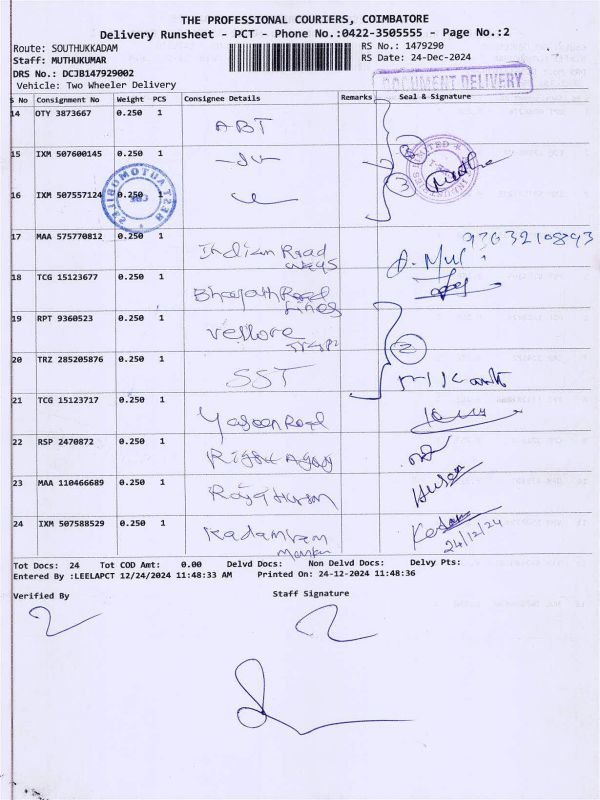 THE PROFESSIONAL COURIERS, COIMBATORE
Delivery Runsheet - PCT - Phone No.:0422-3505555 - Page No.:2
Route: SOUTHUKKADAM RS No.: 1479290
Staff: MUTHUKUMAR RS Date: 24-Dec-2024
DRS No.: DCJB147929002
Vehicle: Two Wheeler Delivery
DOCUMENT DELIVERY
S No Consignment No Weight PCS Consignee Details Remarks Seal & Signature
14 OTY 3873667 0.250 1 ABT
15 IXM 507600145 0.250 1
16 IXM 507557124 0.250 1
3
17 MAA 575770812 0.250 1 Indian Road ways 9363210893
18 TCG 15123677 0.250 1 Bharath Road Lines
19 RPT 9360523 0.250 1 vellore
2
20 TRZ 285205876 0.250 1 SST
21 TCG 15123717 0.250 1 Road
22 RSP 2470872 0.250 1
23 MAA 110466689 0.250 1 Husen
24 IXM 507588529 0.250 1
24/12/24
Tot Docs: 24 Tot COD Amt: 0.00 Delvd Docs: Non Delvd Docs: Delvy Pts:
Entered By :LEELAPCT 12/24/2024 11:48:33 AM Printed On: 24-12-2024 11:48:36
Verified By Staff Signature